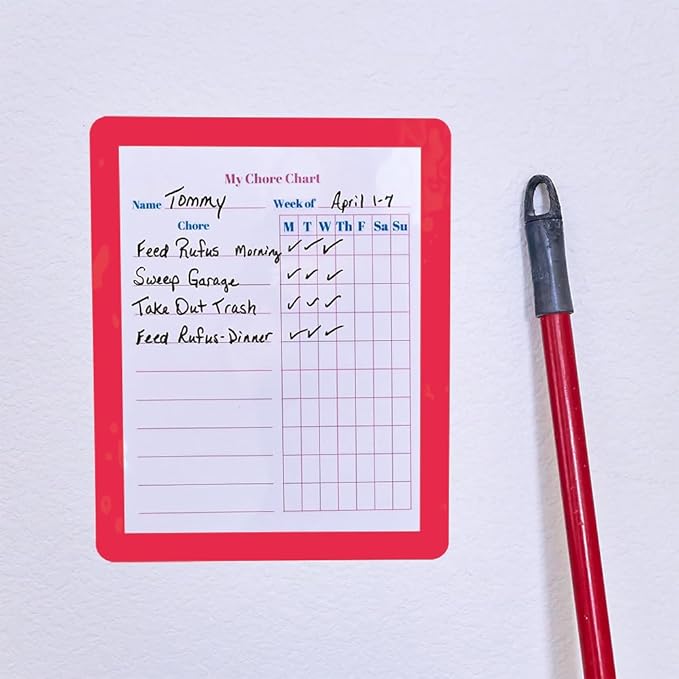 My Chore Chart
Name Tommy Week of April 1-7
Chore M T W Th F Sa Su
Feed Rufus Morning ✓ ✓ ✓
Sweep Garage ✓ ✓ ✓
Take Out Trash ✓ ✓ ✓
Feed Rufus-Dinner ✓ ✓ ✓